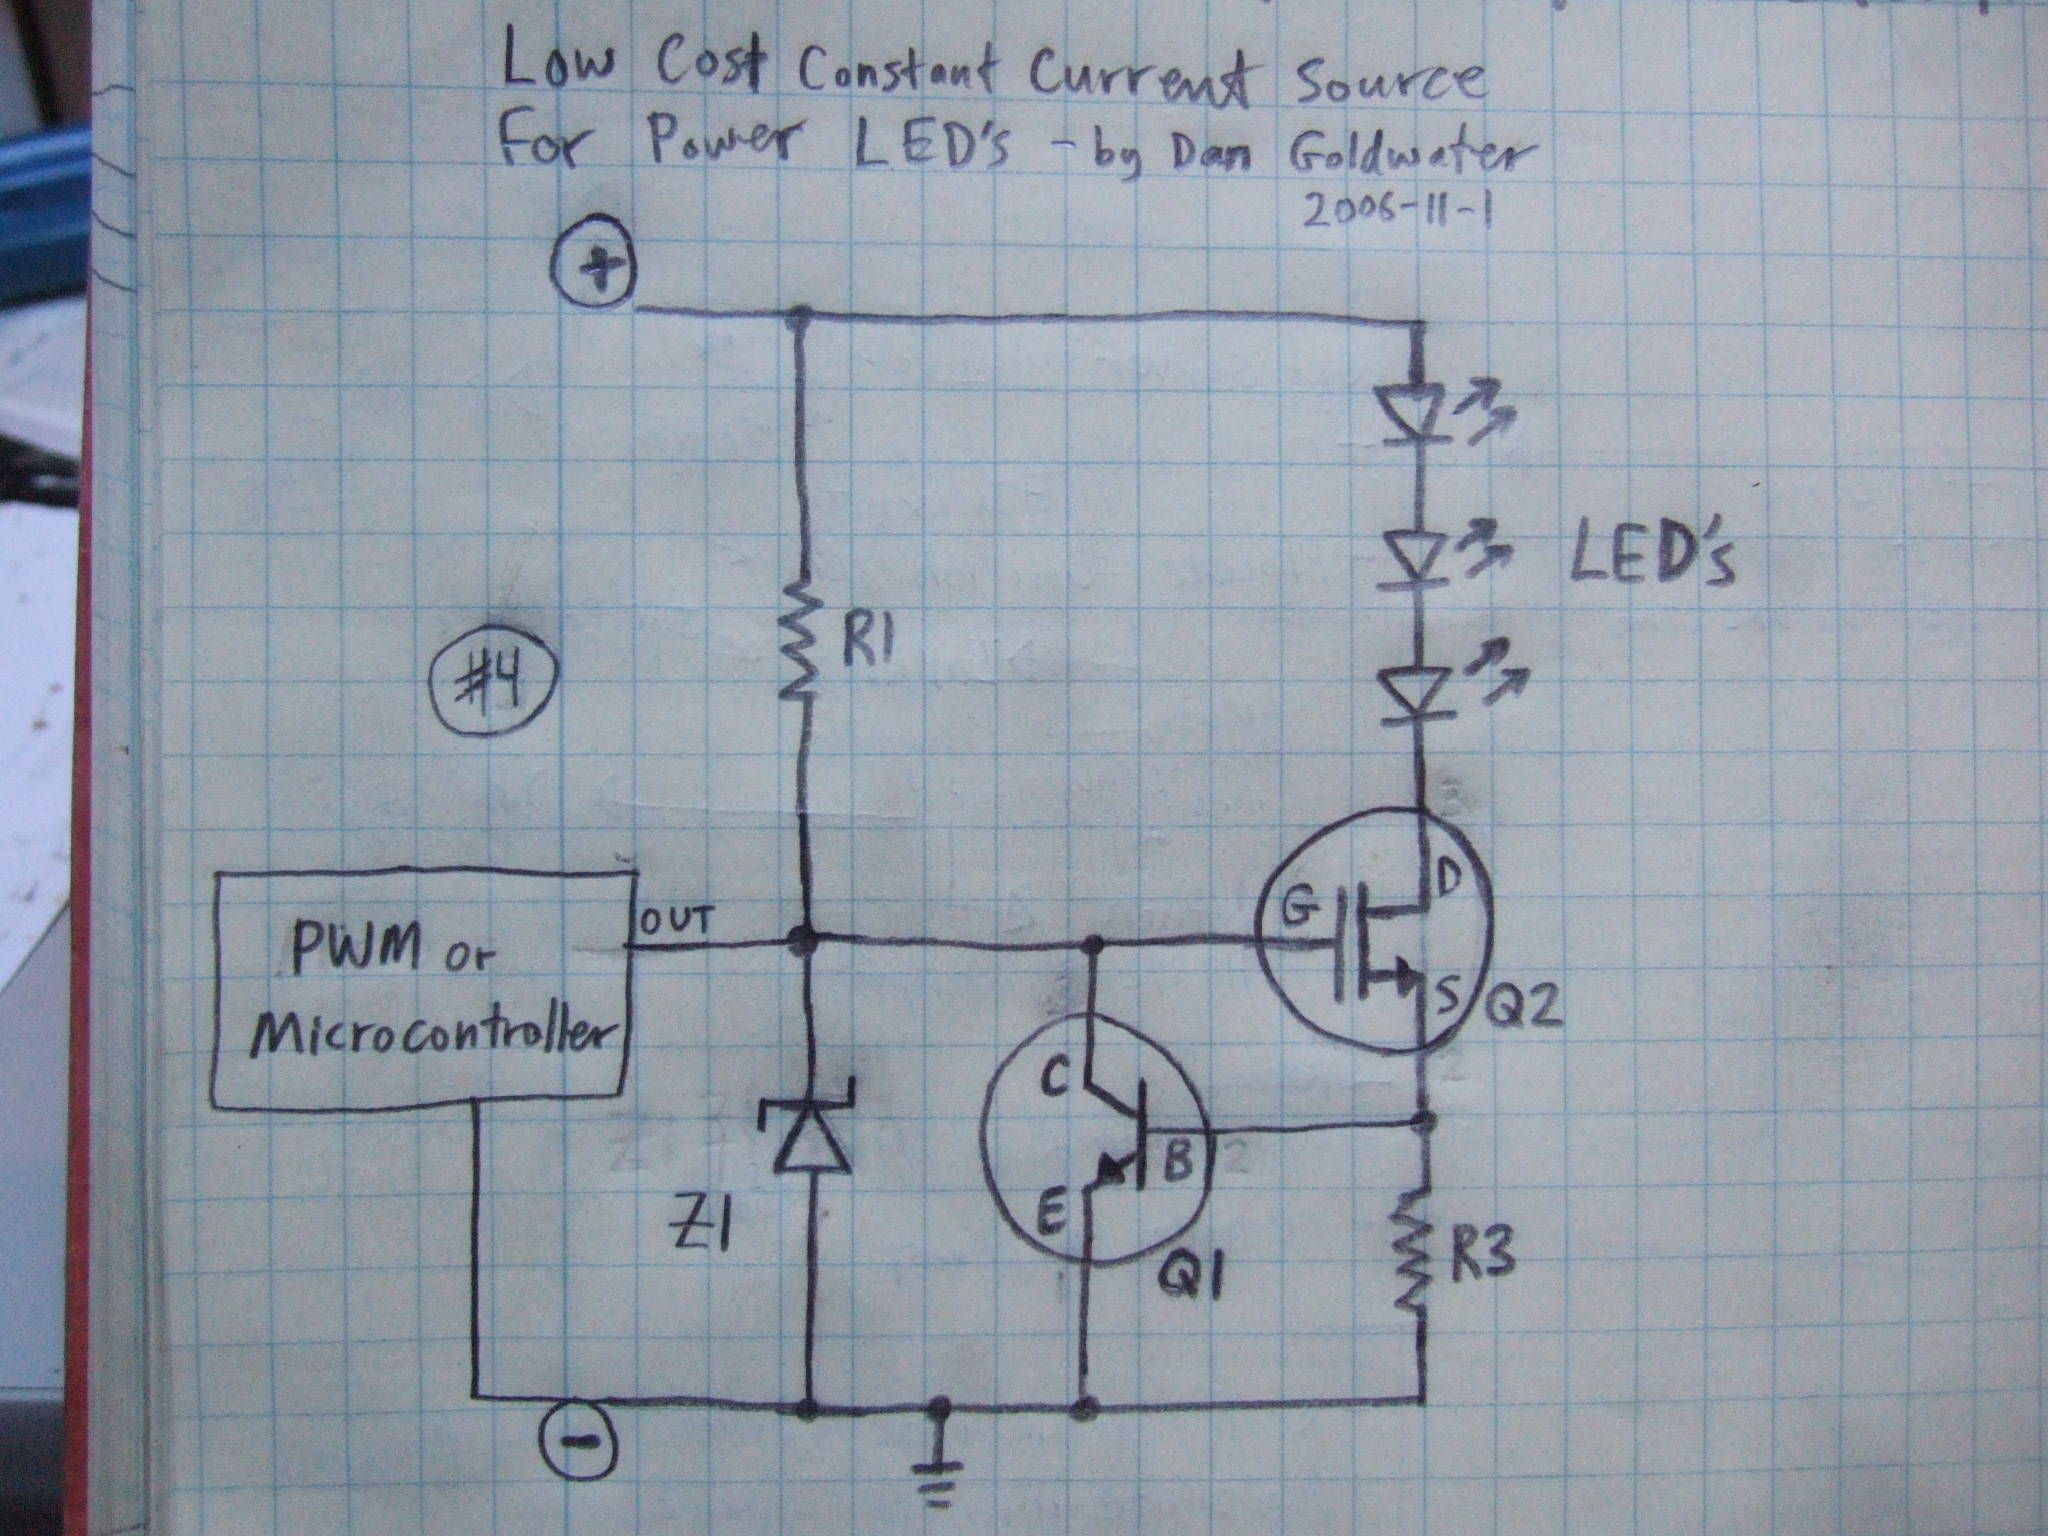 Low Cost Constant Current Source
For Power LED's - by Dan Goldwater
2006-11-1
+
LED's
R1
#4
D
G
OUT
PWM or
Microcontroller
S
Q2
C
B
E
Z1
Q1
R3
-